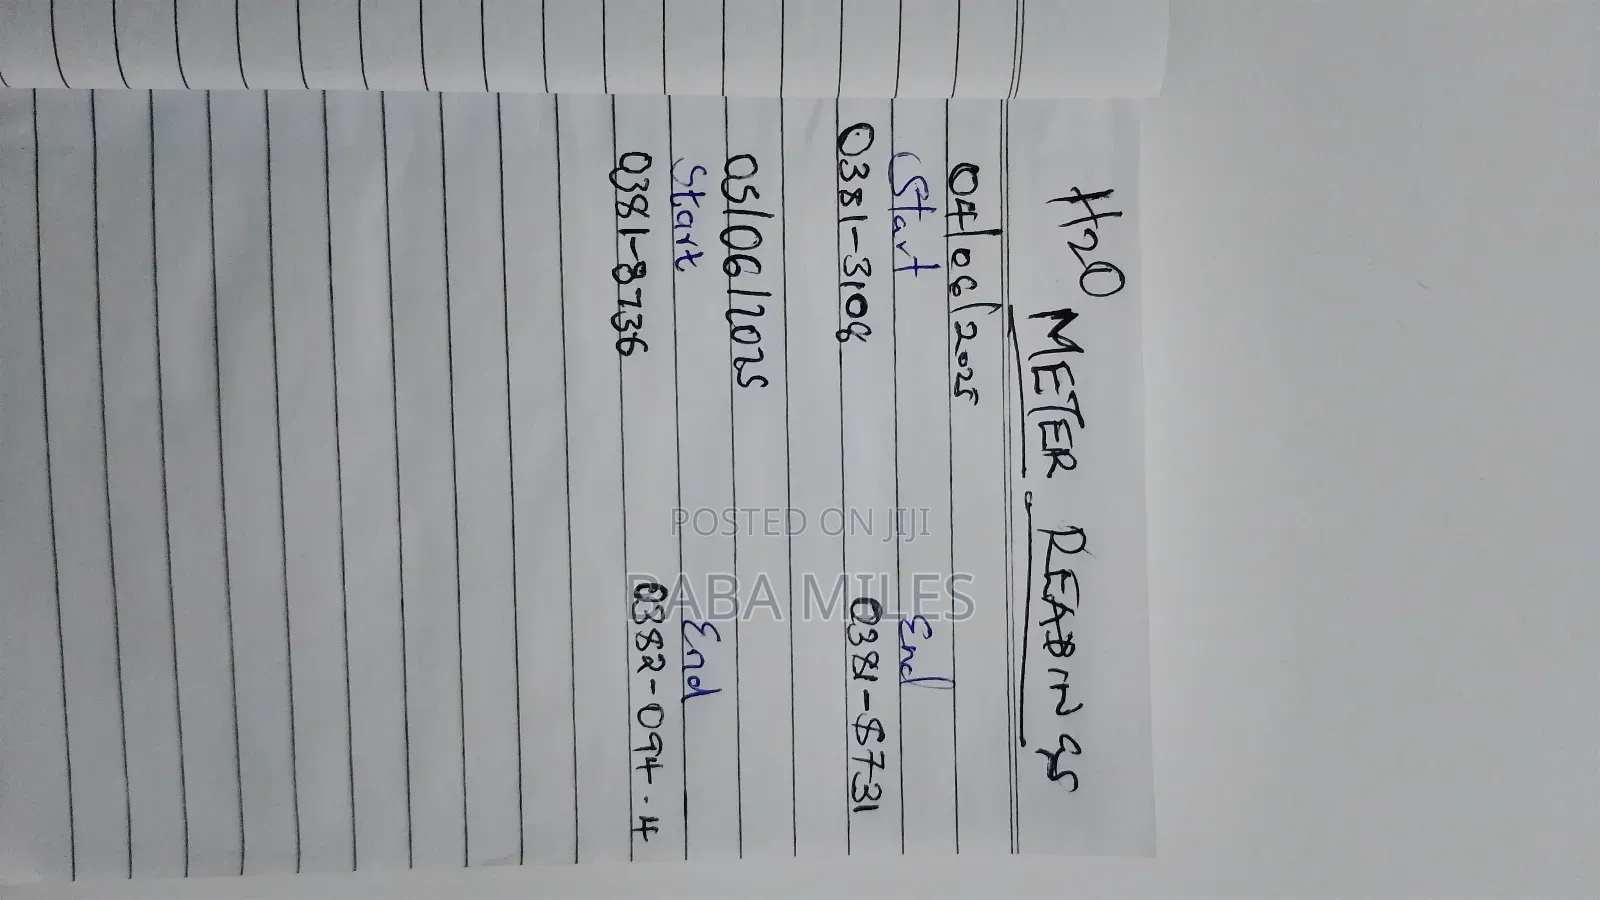 H20 METER READINGS
04/06/2025
Start End
0381-3108 0381-8731
05/06/2025
Start End
0381-8736 0382-094.4
POSTED ON JIJI
BABA MILES